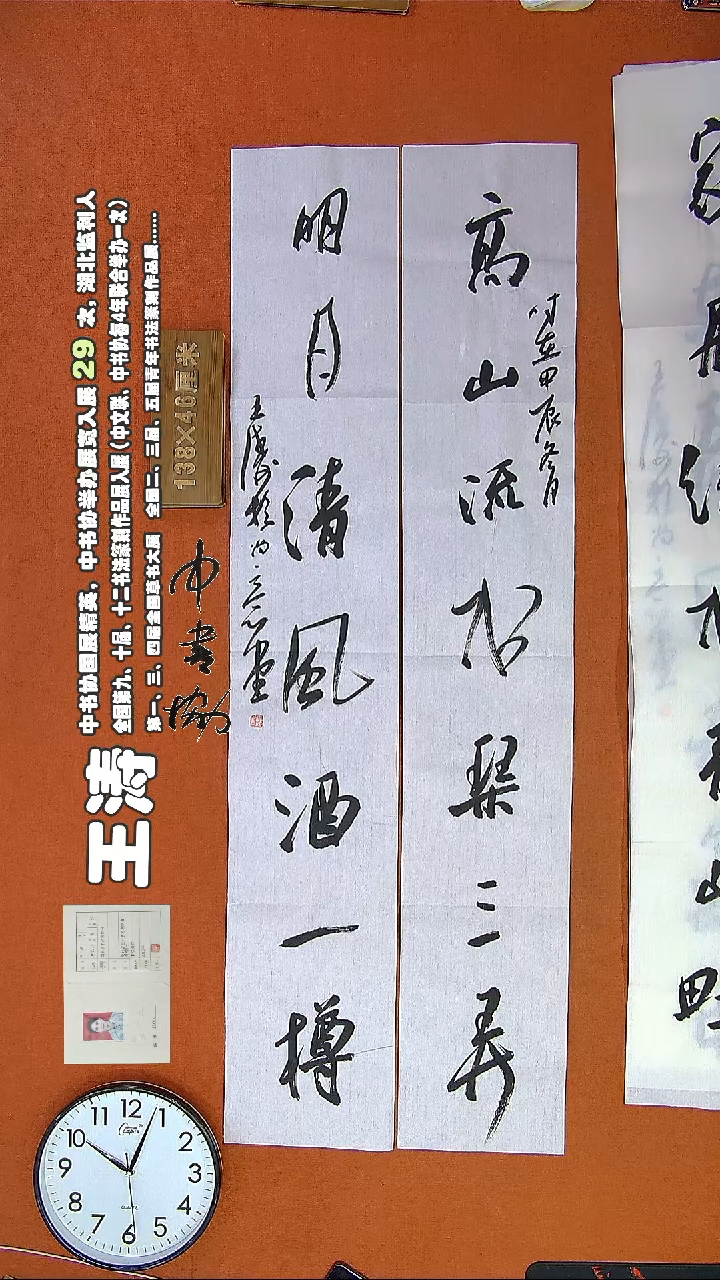 高山流水琴三弄
时在甲辰冬月
明月清风酒一樽
王涛于
中书协国展精英，中书协举办展览入展29次，湖北监利人
全国第九、十届、十二书法篆刻作品展入展（中文联、中书协每4年联合举办一次）
第一、三、四届全国草书大展 全国二、三届、五届青年书法篆刻作品展……
138×46厘米
中书协
王涛
12
1
2
3
4
5
6
7
8
9
10
11
QUARTZ